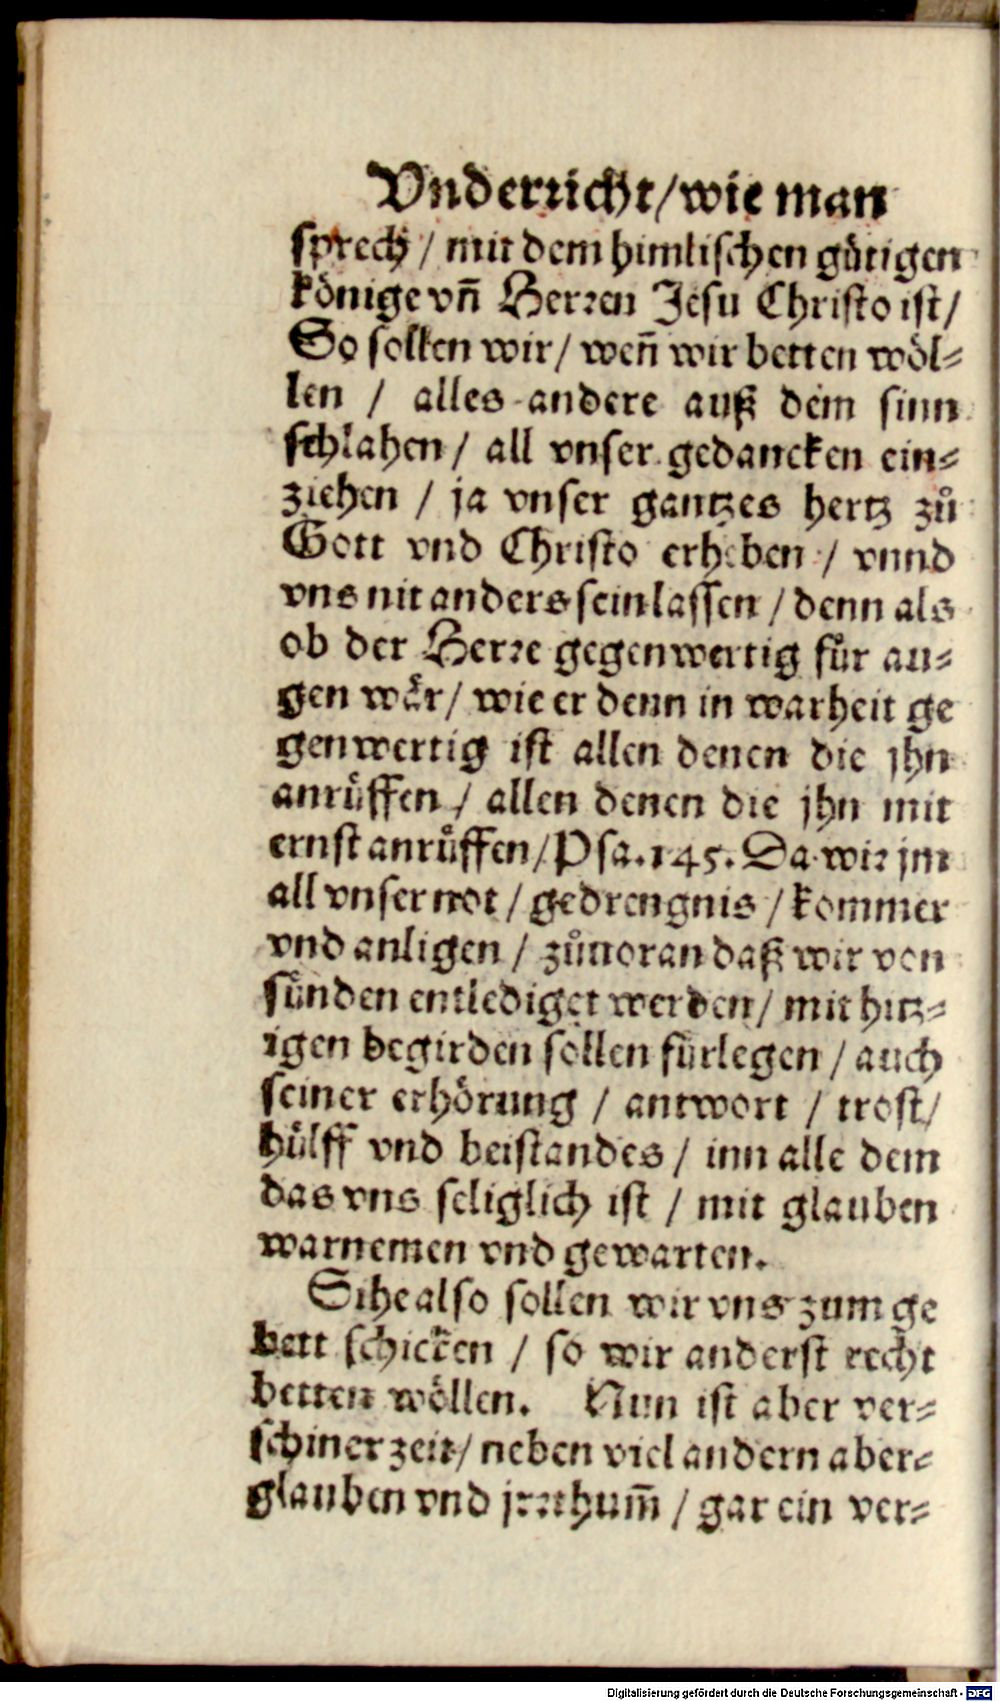 Vnderricht/wie man
sprech / mit dem himlischen gütigen
könige vñ Herren Jesu Christo ist/
So sollen wir/ weñ wir betten wöl⸗
len / alles andere auß dem sinn
schlahen / all vnser gedancken ein⸗
ziehen / ja vnser gantzes hertz zů
Gott vnd Christo erheben / vnnd
vns nit anders sein lassen / denn als
ob der Herre gegenwertig für au⸗
gen wär/ wie er denn in warheit ge
genwertig ist allen denen die jhn
anrůffen / allen denen die jhn mit
ernst anrůffen/Psa.145. Da wir jm
all vnser not / gedrengnis / kommer
vnd anligen / zůuoran daß wir von
sünden entlediget werden/ mit hitz⸗
igen begirden sollen fürlegen / auch
seiner erhörung / antwort / trost/
hülff vnd beistandes / inn alle dem
das vns seliglich ist / mit glauben
warnemen vnd gewarten.
Sihe also sollen wir vns zum ge
bett schicken / so wir anderst recht
betten wöllen. Nun ist aber ver⸗
schiner zeit/ neben viel andern aber⸗
glauben vnd jrrthum̃ / gar ein ver⸗
Digitalisierung gefördert durch die Deutsche Forschungsgemeinschaft - DFG